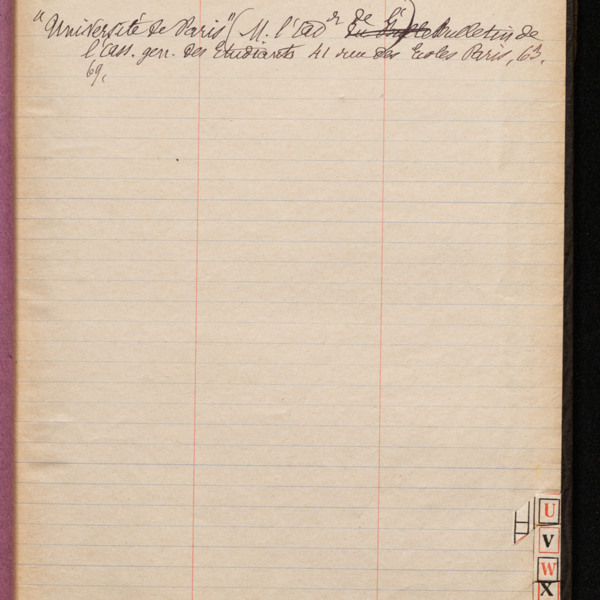 "Université de Paris" (M. l'adr de la) Bulletin de
l'ass. gen. des Etudiants 41 rue des Ecoles Paris, 63,
69,
U
V
W
X